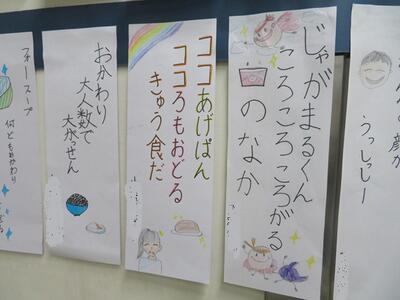 の顔が
うっしっしー
じゃがまるくん
ころころころがる
口のなか
ココあげぱん
ココろもおどる
きゅう食だ
おかわり
大人数で
大がっせん
フォースープ
何どもおかわり